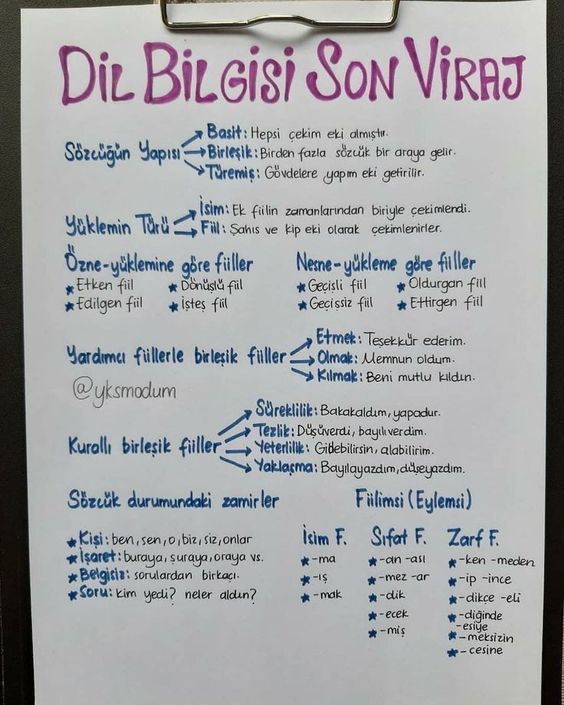 DİL BİLGİSİ SON VİRAJ
Sözcüğün Yapısı
Basit: Hepsi çekim eki almıştır.
Birleşik: Birden fazla sözcük bir araya gelir.
Türemiş: Gövdelere yapım eki getirilir.
Yüklemin Türü
İsim: Ek fiilin zamanlarından biriyle çekimlendi.
Fiil: Şahıs ve kip eki olarak çekimlenirler.
Özne-yüklemine göre fiiller
★ Etken fiil ★ Dönüşlü fiil
★ Edilgen fiil ★ İşteş fiil
Nesne-yükleme göre fiiller
★ Geçişli fiil ★ Oldurgan fiil
★ Geçişsiz fiil ★ Ettirgen fiil
Yardımcı fiillerle birleşik fiiller
Etmek: Teşekkür ederim.
Olmak: Memnun oldum.
Kılmak: Beni mutlu kıldın.
@yksmodum
Kurallı birleşik fiiller
Süreklilik: Bakakaldım, yapadur.
Tezlik: Düşüverdi, bayılıverdim.
Yeterlilik: Gidebilirsin, alabilirim.
Yaklaşma: Bayılayazdım, düşeyazdım.
Sözcük durumundaki zamirler
★ Kişi: ben, sen, o, biz, siz, onlar
★ İşaret: buraya, şuraya, oraya vs.
★ Belgisiz: sorulardan birkaçı.
★ Soru: kim yedi? neler aldın?
Fiilimsi (Eylemsi)
İsim F.
★ -ma
★ -ış
★ -mak
Sıfat F.
★ -an -ası
★ -mez -ar
★ -dik
★ -ecek
★ -miş
Zarf F.
★ -ken -meden
★ -ip -ince
★ -dikçe -eli
★ -diğinde
-esiye
★ -meksizin
★ -cesine